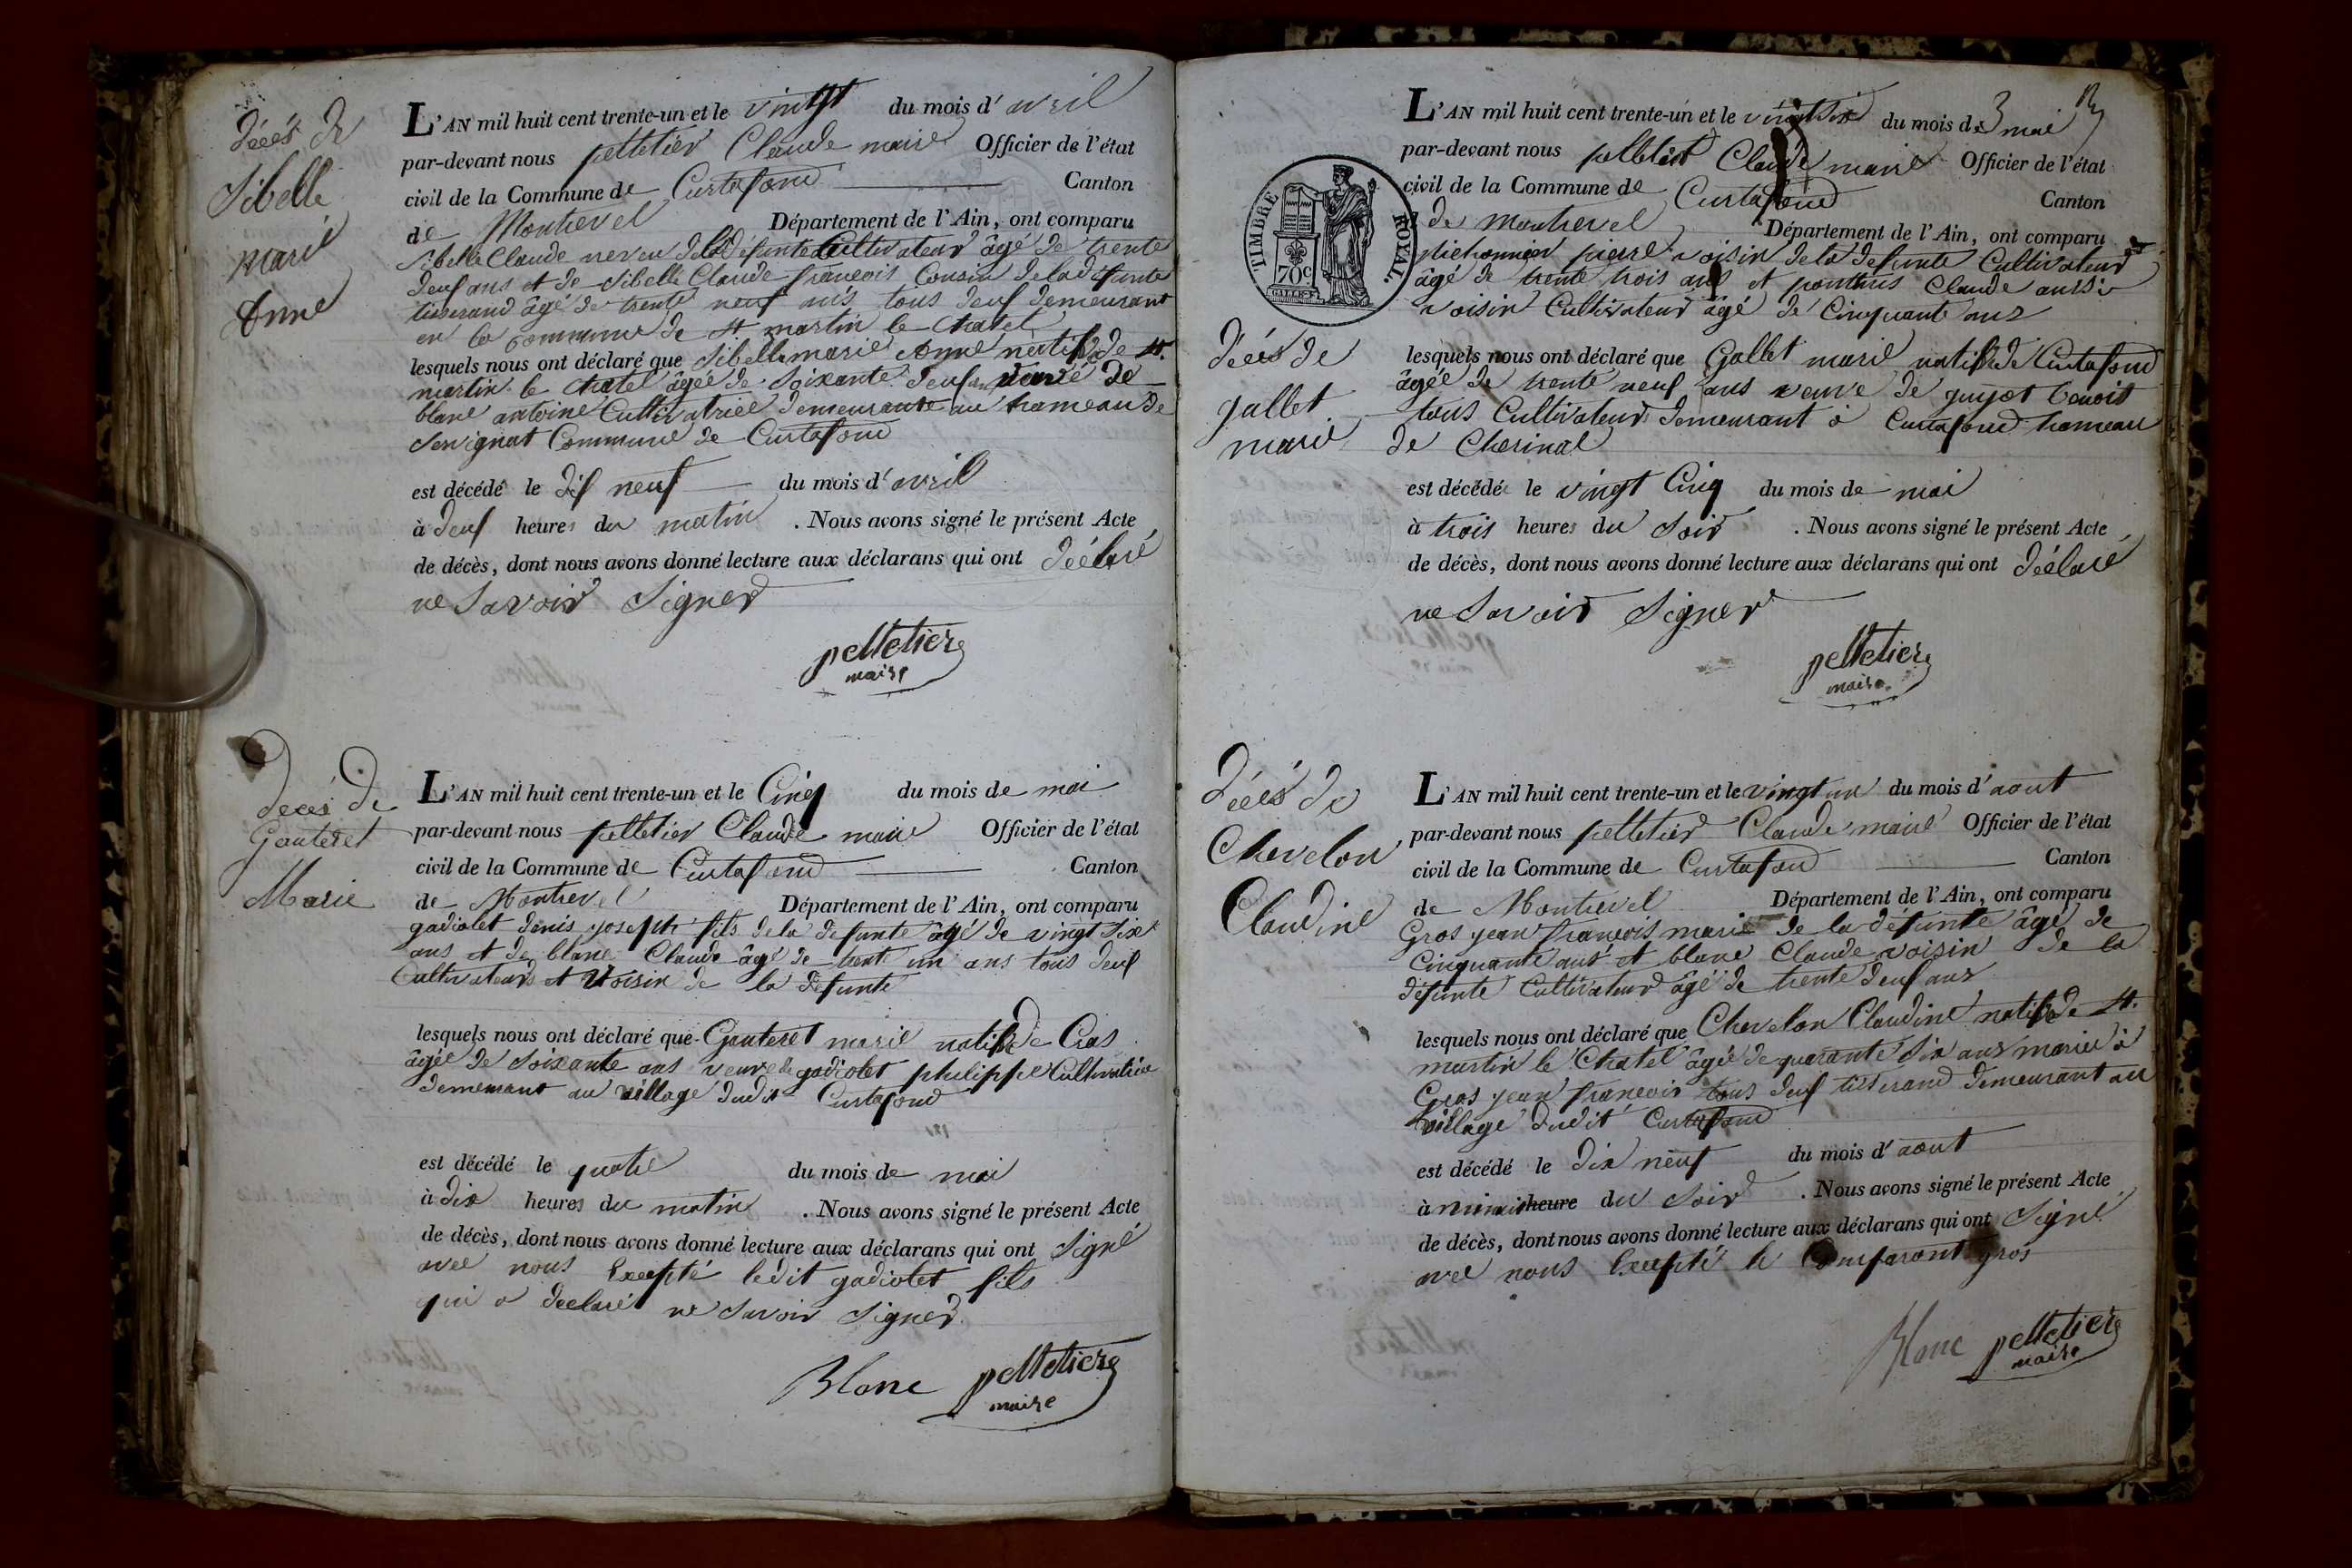 décés de
Sibelle
marie
Anne
L'AN mil huit cent trente-un et le vingt du mois d'avril
par-devant nous pelletier Claude maire Officier de l'état
civil de la Commune de Curtafond Canton
de Montrevel Département de l'Ain, ont comparu
Sibelle Claude neveu de la défunte Cultivateur âgé de trente
deux ans et de Sibelle Claude françois Cousin de la défunte
tisserand âgé de trente neuf ans tous deux demeurant
en la commune de St. martin le Chatel
lesquels nous ont déclaré que Sibelle marie Anne natif de St.
martin le Chatel âgée de Soixante deux ans veuve de
blanc antoine Cultivatrice demeurante au hameau de
Sevignat Commune de Curtafond
est décédé le dix neuf du mois d'avril
à deux heures du matin . Nous avons signé le présent Acte
de décès, dont nous avons donné lecture aux déclarans qui ont déclaré
ne Savoir Signer
pelletier
maire
décés de
Gauteret
Marie
L'AN mil huit cent trente-un et le Cinq du mois de mai
par-devant nous pelletier Claude maire Officier de l'état
civil de la Commune de Curtafond Canton
de Montrevel Département de l'Ain, ont comparu
gadiolet denis joseph fils de la défunte âgé de vingt Six
ans et de blanc Claude âgé de trente un ans tous deux
Cultivateurs et Voisin de la défunte
lesquels nous ont déclaré que Gauteret marie natif de Cras
âgée de Soixante ans veuve de gadiolet philippe Cultivatrice
demeurant au village dudit Curtafond
est décédé le quatre du mois de mai
à dix heures du matin . Nous avons signé le présent Acte
de décès, dont nous avons donné lecture aux déclarans qui ont Signé
avec nous Excepté ledit gadiolet fils
qui a declaré ne Savoir Signer
Blanc pelletier
maire
TIMBRE ROYAL.
70c
décés de
gallet
marie
L'AN mil huit cent trente-un et le vingt Six du mois de mai
par-devant nous pelletier Claude maire Officier de l'état
civil de la Commune de Curtafond Canton
de Montrevel Département de l'Ain, ont comparu
pierre voisin de la défunte Cultivateur
âgé de trente trois ans et ponthus Claude aussi
voisin Cultivateur âgé de Cinquante ans
lesquels nous ont déclaré que Gallet marie natif de Curtafond
âgée de trente neuf ans veuve de guyot benoit
tous Cultivateurs demeurant à Curtafond hameau
de Cherinal
est décédée le vingt Cinq du mois de mai
à trois heures du Soir . Nous avons signé le présent Acte
de décès, dont nous avons donné lecture aux déclarans qui ont déclaré
ne Savoir Signer
pelletier
maire
décés de
Chevelon
Claudine
L'AN mil huit cent trente-un et le vingt un du mois d'aout
par-devant nous pelletier Claude maire Officier de l'état
civil de la Commune de Curtafond Canton
de Montrevel Département de l'Ain, ont comparu
Gros jean françois marie de la défunte âgé de
Cinquante ans et blanc Claude voisin de la
défunte Cultivateur âgé de trente deux ans
lesquels nous ont déclaré que Chevelon Claudine natif de St.
martin le Chatel âgée de quarante Six ans mariée à
Gros jean françois tous deux tisserand demeurant au
village dudit Curtafond
est décédé le dix neuf du mois d'aout
à minuit heure du Soir . Nous avons signé le présent Acte
de décès, dont nous avons donné lecture aux déclarans qui ont Signé
avec nous Excepté le Comparant gros
Blanc pelletier
maire